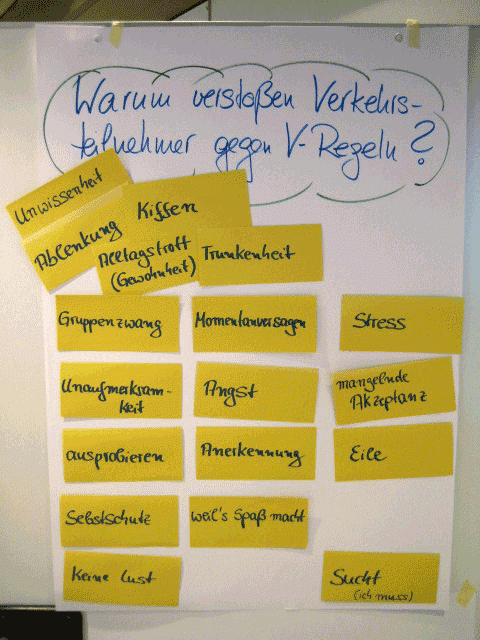 Warum verstoßen Verkehrs-
teilnehmer gegen V-Regeln?
Unwissenheit
Ablenkung
Kiffen
Alltagstrott
(Gewohnheit)
Trunkenheit
Gruppenzwang
Momentanversagen
Stress
Unaufmerksam-
keit
Angst
mangelnde
Akzeptanz
ausprobieren
Anerkennung
Eile
Selbstschutz
weil's Spaß macht
Keine Lust
Sucht
(ich muss)